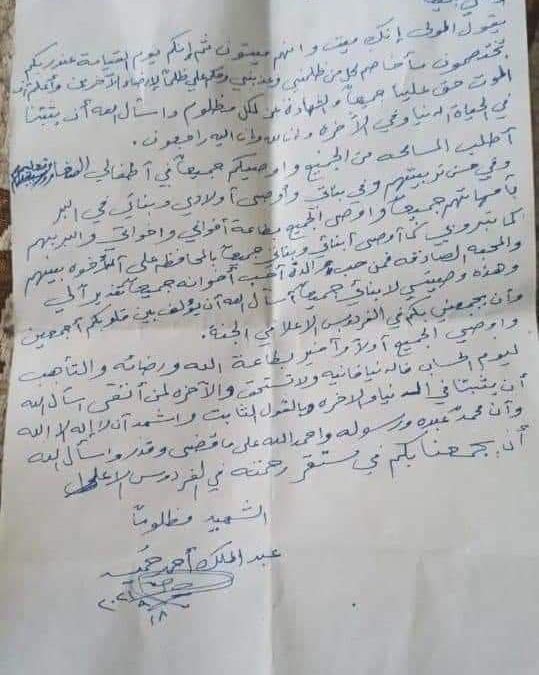 يقول المولى إنك ميت وانهم ميتون ثم إنكم يوم القيامة عند ربكم
تختصمون سأخاصم كل من ظلمني وحكم علي ظلماً لإرضاء الآخرين وأعلم أن
الموت حق علينا جميعاً والشهادة عز لكل مظلوم واسأل الله أن يثبتنا
في الحياة الدنيا وفي الآخرة وإنا لله وإن اليه راجعون.
أطلب المسامحه من الجميع واوصيكم جميعاً في أطفالي
وفي حسن تربيتهم وفي بناتي وأوصي أولادي وبناتي في البر
بأمهاتهم جميعاً واوصي الجميع بطاعة أخوالي واخواني والبر بهم
كما تبروني كما أوصي أبنائي وبناتي جميعاً بالحافظه على الأخوه بينهم
والمحبه الصادقه فمن حب والده أحب أخوانه جميعاً تقديراً لي
وهذه وصيتي لابنائي جميعاً أسأل الله أن يؤلف بين قلوبكم أجمعين
وأن يجمعني بكم في الفردوس الاعلى في الجنة.
واوصي الجميع أولاً وآخراً بطاعة الله ورضائه والتأهب
ليوم الحساب فالدنيا فانيه ولا تستحق والآخره لمن أتقى اسأل الله
أن يثبتنا في الدنيا والاخره بالقول الثابت واشهد أن لا إله إلا الله
وأن محمد عبده ورسوله واحمد الله على ما قضى وقدر واسأل الله
أن يجمعنا بكم في مستقر رحمته في الفردوس الاعلى
الشهيد مظلوماً
عبد الملك أحمد حميد
١٨